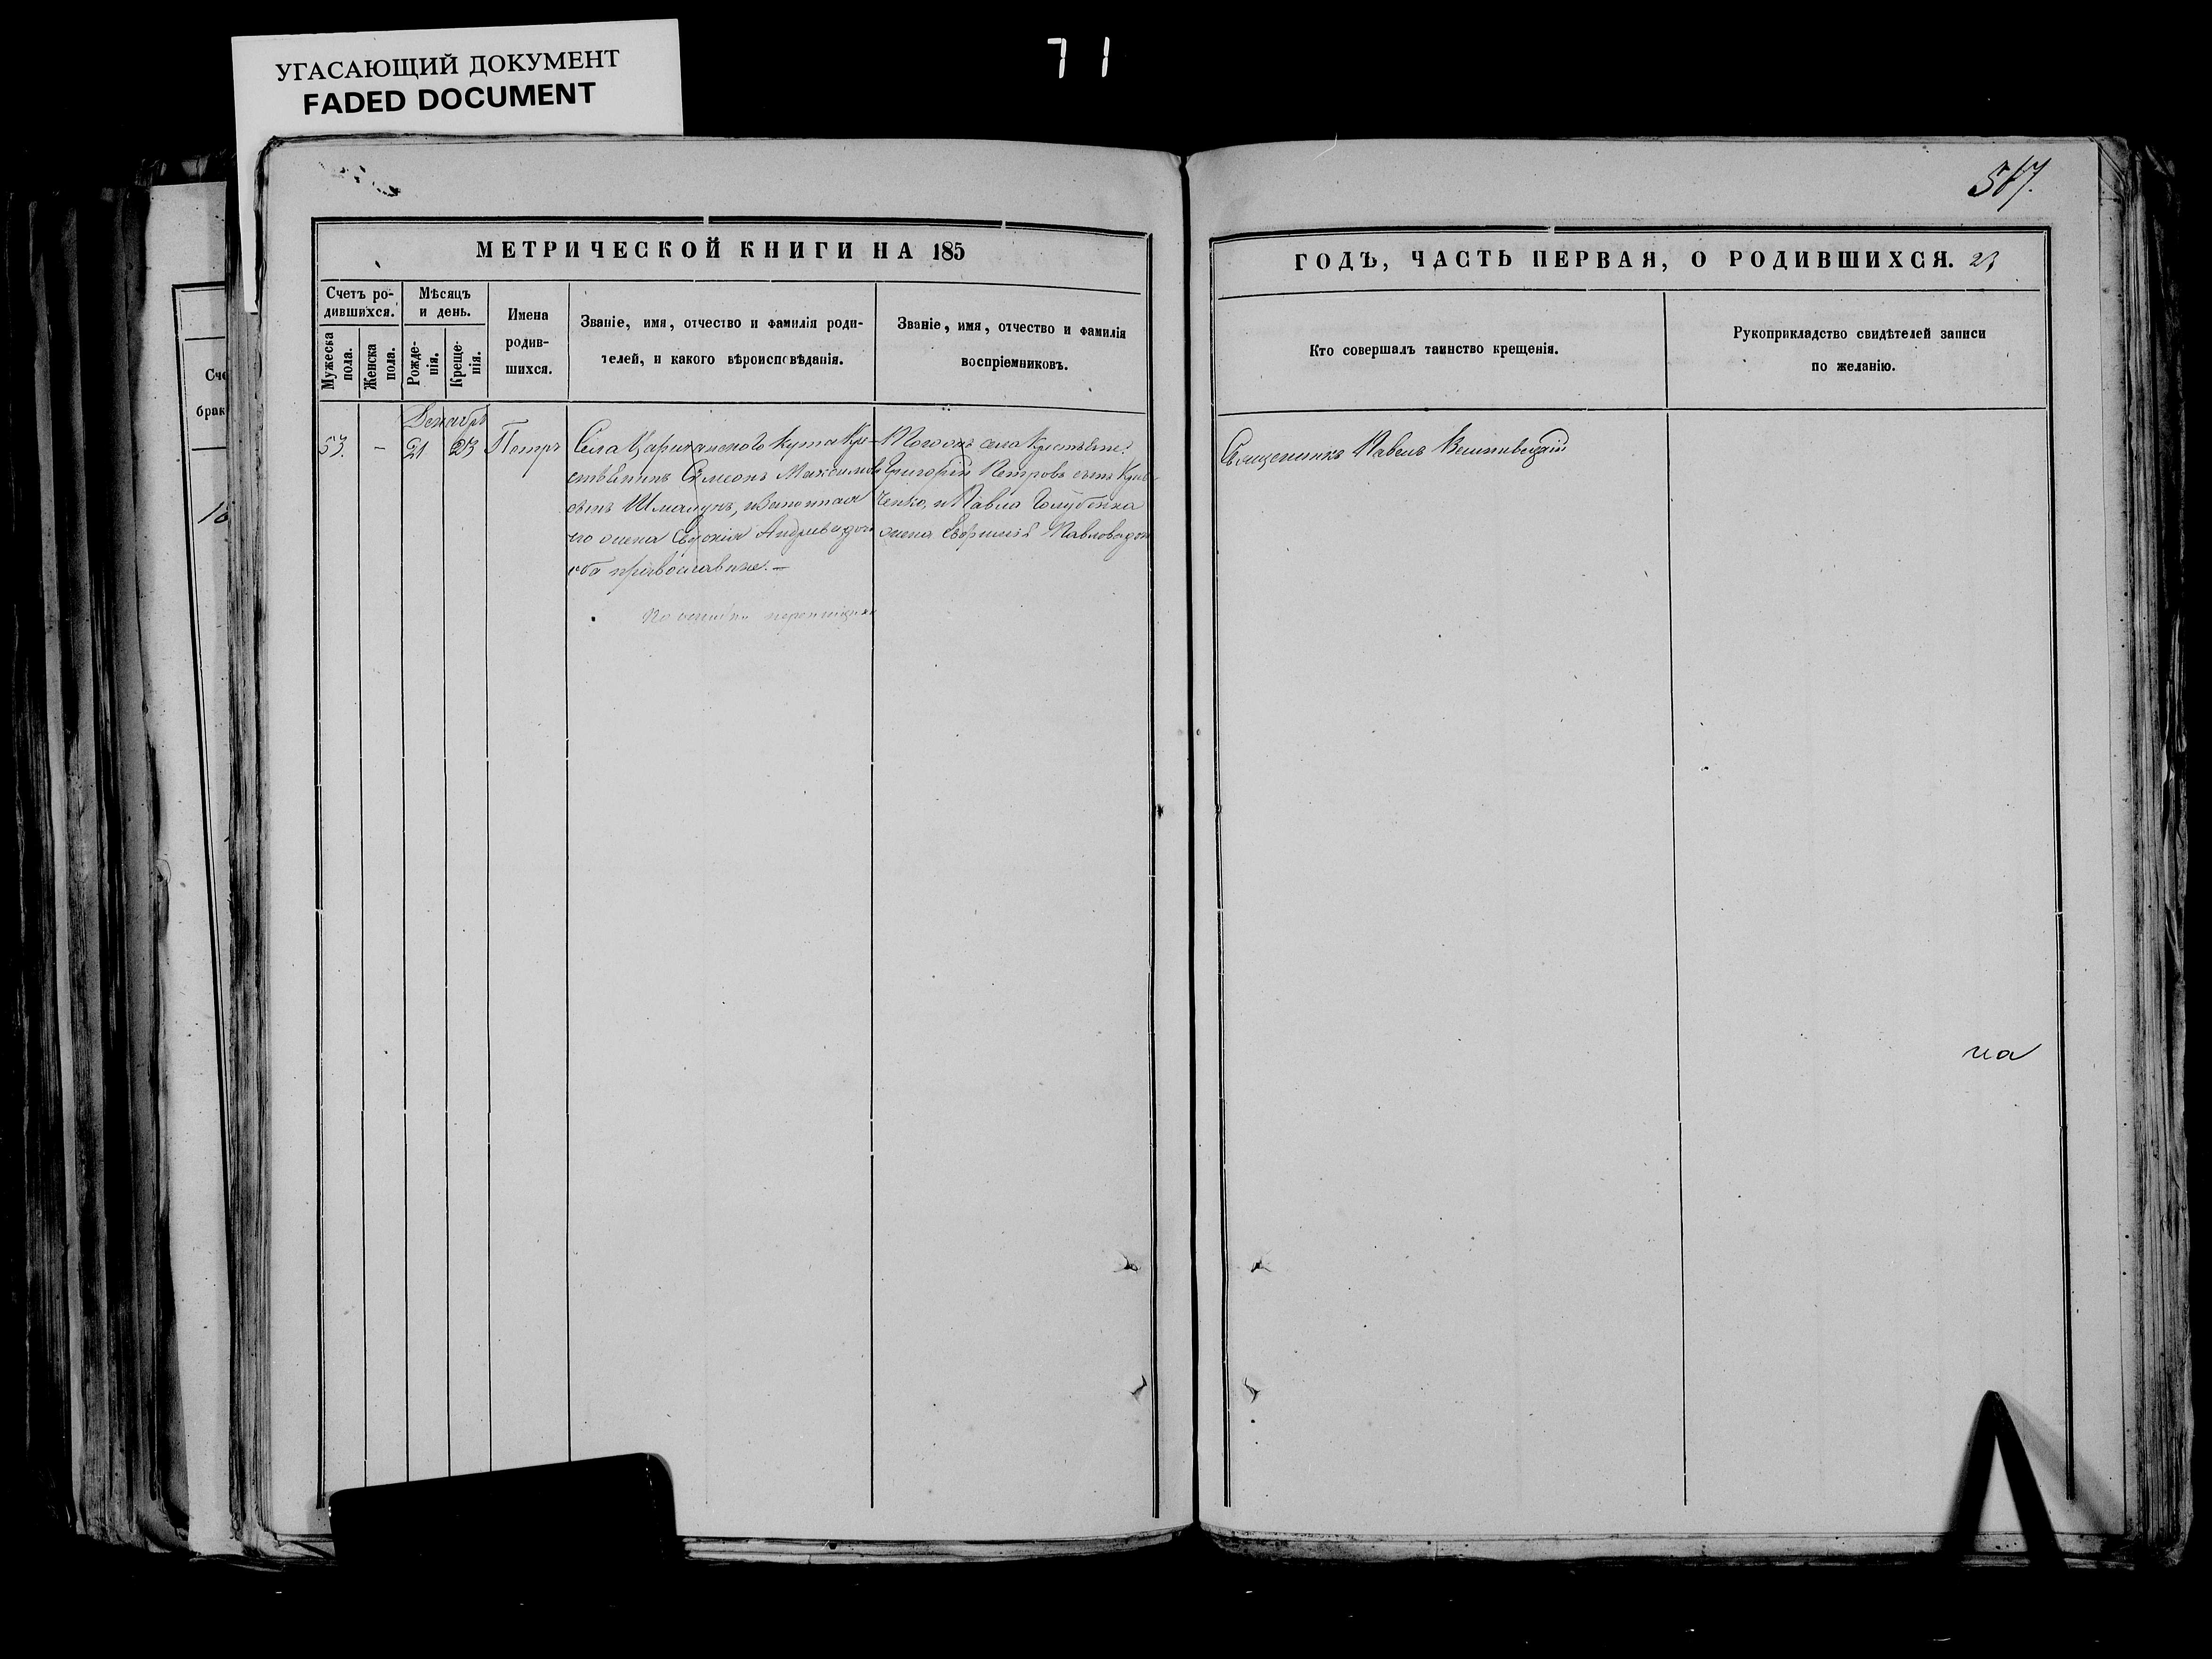 71
УГАСАЮЩИЙ ДОКУМЕНТ
FADED DOCUMENT
Сче
брак
МЕТРИЧЕСКОЙ КНИГИ НА 185
Счетъ ро-
дившихся.
Мужеска
пола.
Женска
пола.
Мѣсяцъ
и день.
Рожде-
нія.
Креще-
нія.
Имена
родив-
шихся.
Званіе, имя, отчество и фамилія роди-
телей, и какого вѣроисповѣданія.
Званіе, имя, отчество и фамилія
воспріемниковъ.
Декабрь
53. – 21 23 Петръ
Села Царичанского Кута Кре-
стьянинъ Симеонъ Максимов
сынъ и законная
его жена Евдокія Андреева доч
оба православные. –
По ошибки
села Крестьяне:
Григорій Петровъ сынъ Крав-
ченко, и Павла Голубенка
жена Павлова доч
587.
ГОДЪ, ЧАСТЬ ПЕРВАЯ, О РОДИВШИХСЯ.
Кто совершалъ таинство крещенія.
Рукоприкладство свидѣтелей записи
по желанію.
Священникъ Павелъ
на